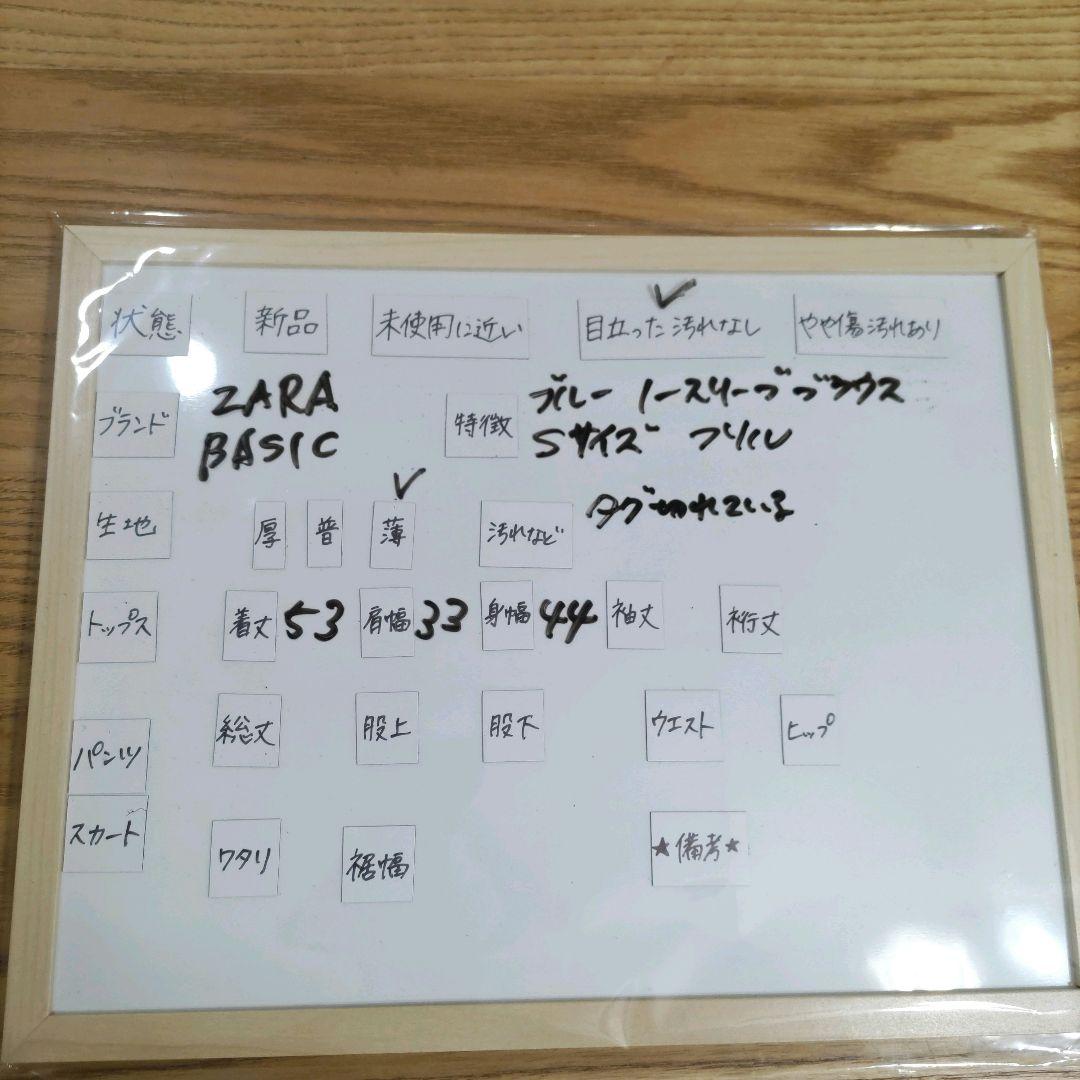 ✓
状態 新品 未使用に近い 目立った汚れなし やや傷汚れあり
ブランド ZARA BASIC 特徴 ブルー ノースリーブブラウス
Sサイズ フリル
✓
生地 厚 普 薄 汚れなど タグ切れている
トップス 着丈 53 肩幅 33 身幅 44 袖丈 裄丈
パンツ 総丈 股上 股下 ウエスト ヒップ
スカート ワタリ 裾幅 ★備考★